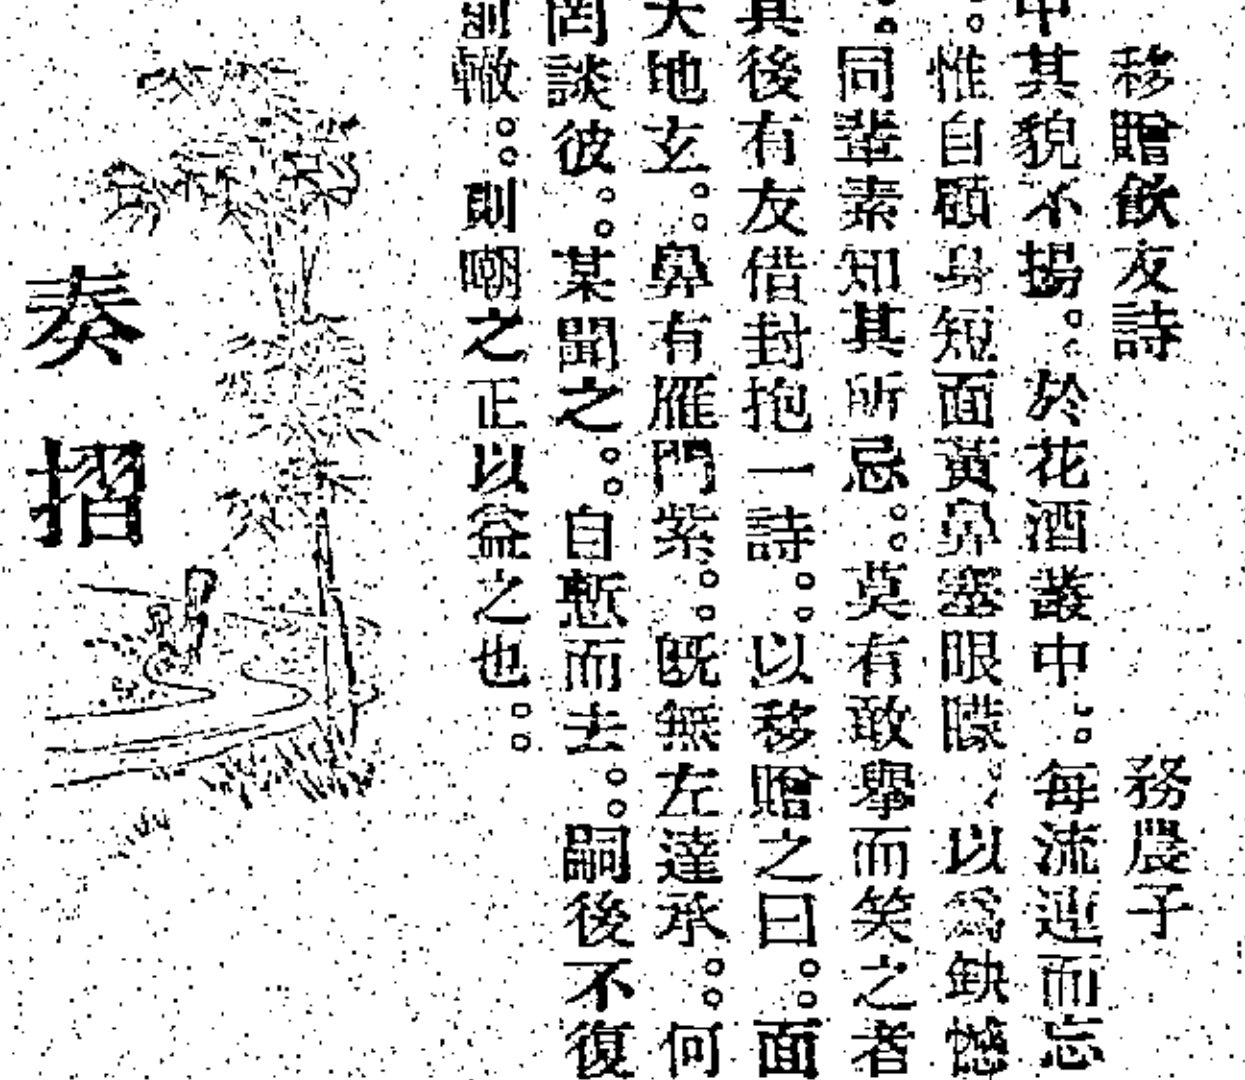 移贈飲友詩　務農子
中其貌不揚。於花酒叢中。每流連而忘
。惟自顧身短面黃鼻塞眼矇。以爲缺憾
。同輩素知其所忌。莫有敢舉而笑之者
其後有友借封抱一詩。以移贈之曰。面
天地玄。鼻有雁門紫。旣無左達承。何
罔談彼。某聞之。自慙而去。嗣後不復
前轍。則嘲之正以益之也。
奏摺